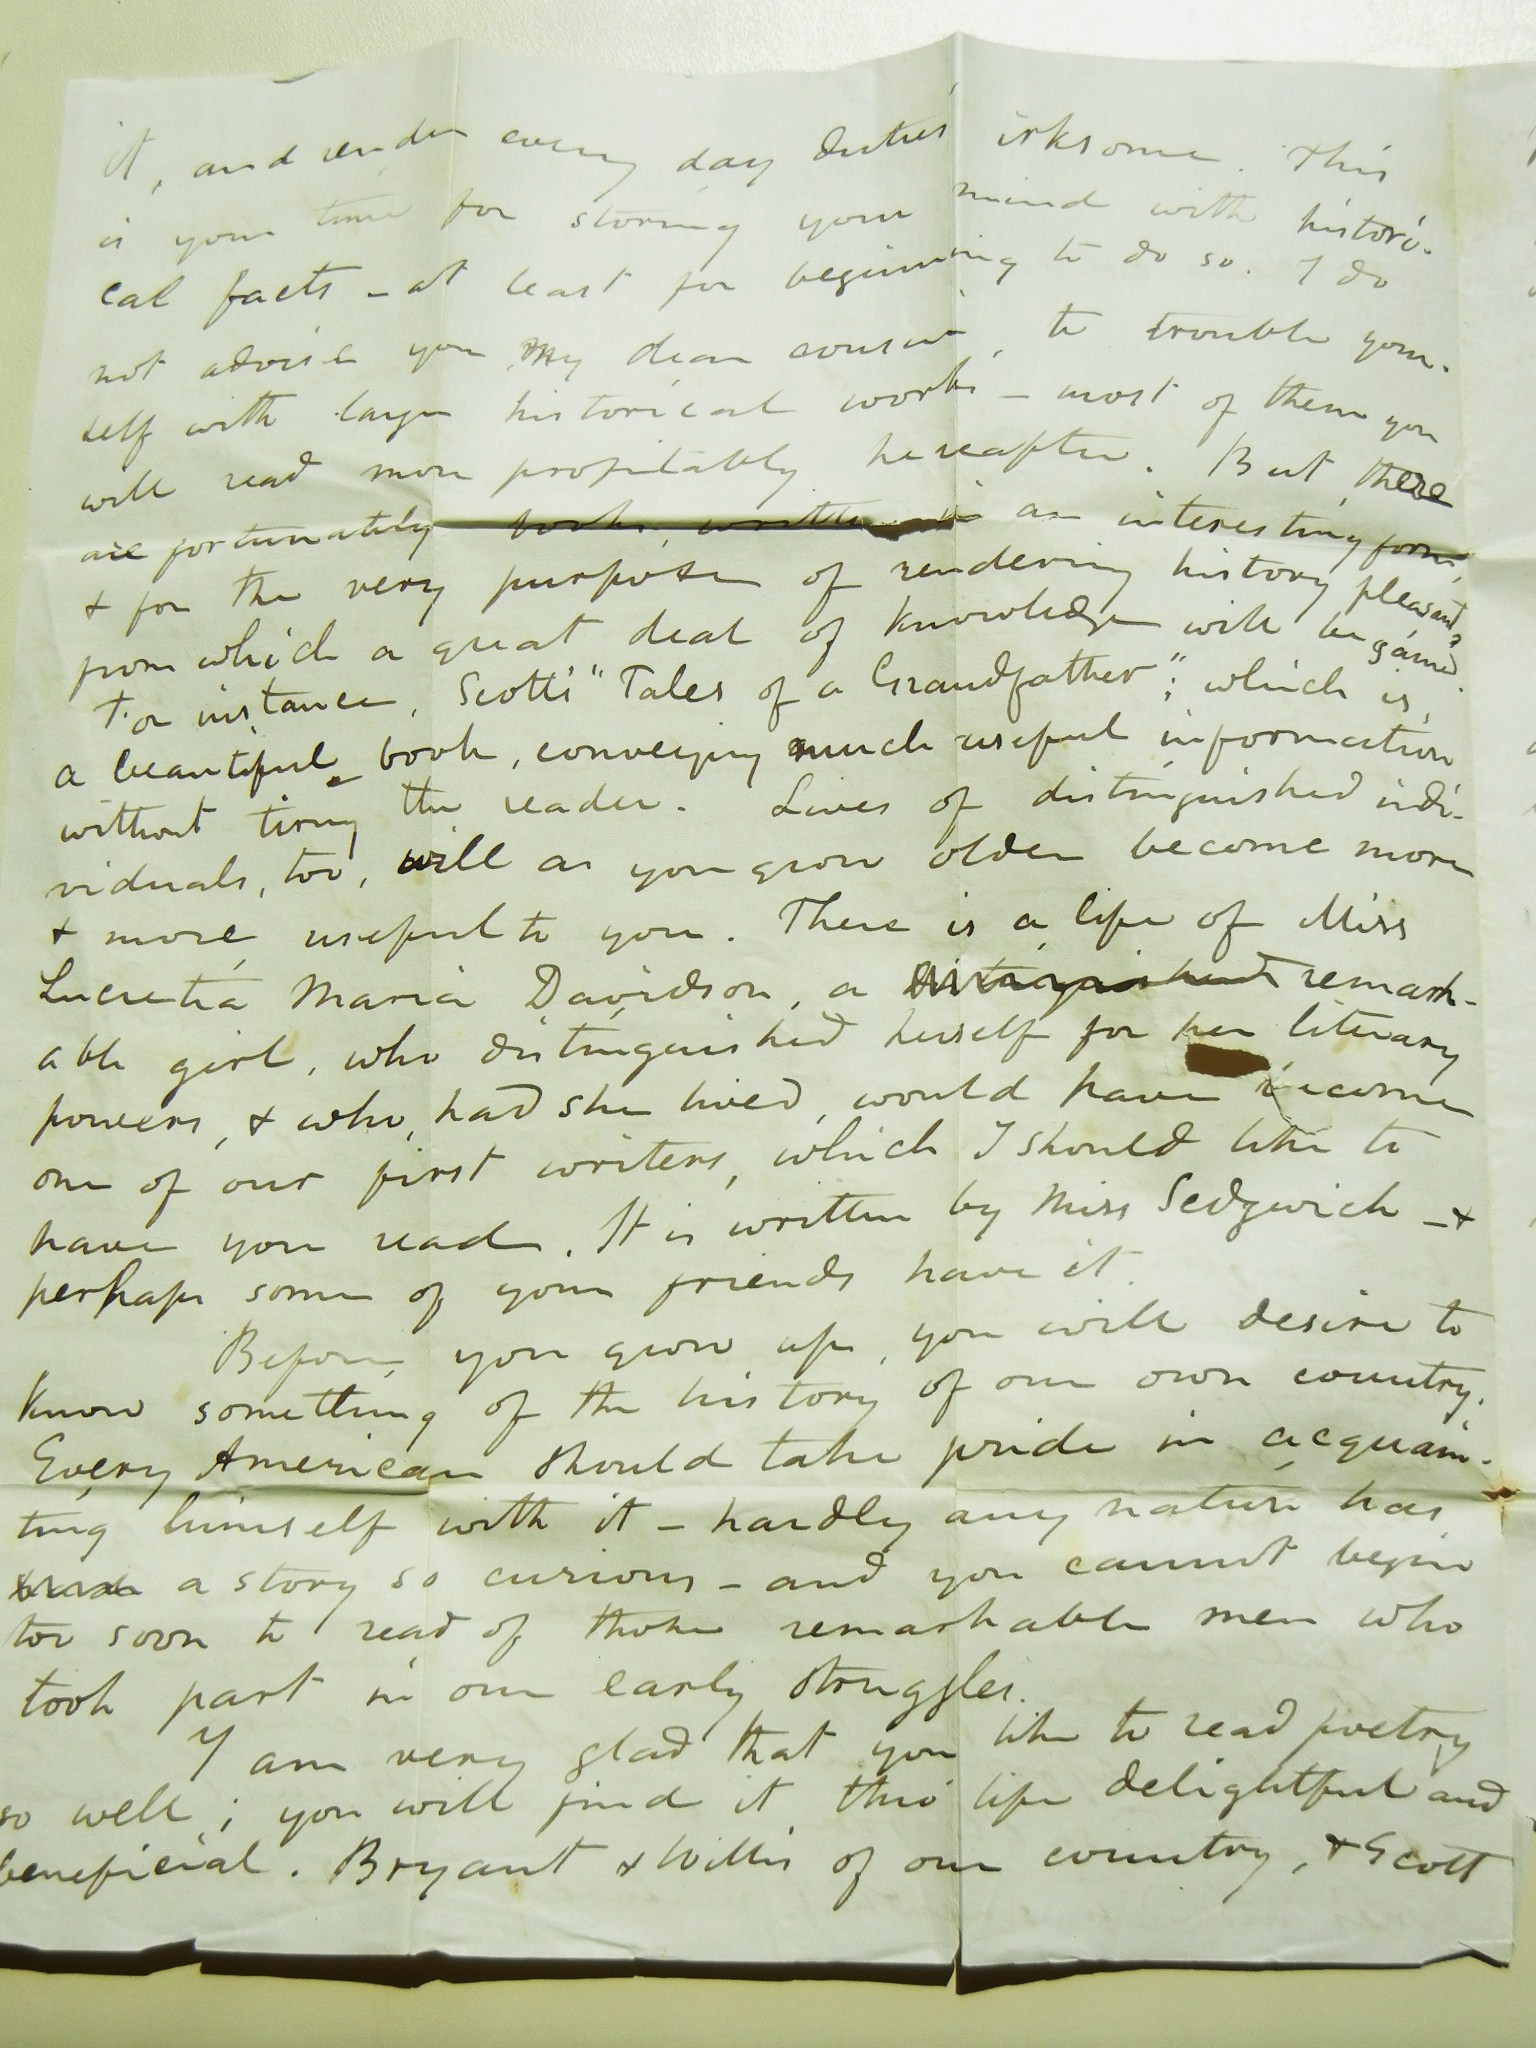 it, and render every day duties irksome. This
is your time for storing your mind with histori-
cal facts - at least for beginning to do so. I do
not advise you my dear cousin, to trouble your-
self with large historical works - most of them you
will read more profitably hereafter. But there
are fortunately books, written in an interesting form,
& for the very purpose of rendering history pleasant,
from which a great deal of knowledge will be gained.
For instance, Scott's "Tales of a Grandfather"; which is
a beautiful book, conveying much useful information
without tiring the reader. Lives of distinguished indi-
viduals, too, will as you grow older become more
& more useful to you. There is a life of Miss
Lucretia Maria Davidson, a distinguished remark-
able girl, who distinguished herself for her literary
powers, & who, had she lived, would have become
one of our first writers, which I should like to
have you read. It is written by Miss Sedgwick - &
perhaps some of your friends have it.
Before you grow up, you will desire to
know something of the history of our own country.
Every American should take pride in acquain-
ting himself with it - hardly any nation has
a story so curious - and you cannot begin
too soon to read of those remarkable men who
took part in our early struggles.
I am very glad that you like to read poetry
so well; you will find it thro' life delightful and
beneficial. Bryant & Willis of our country, & Scott